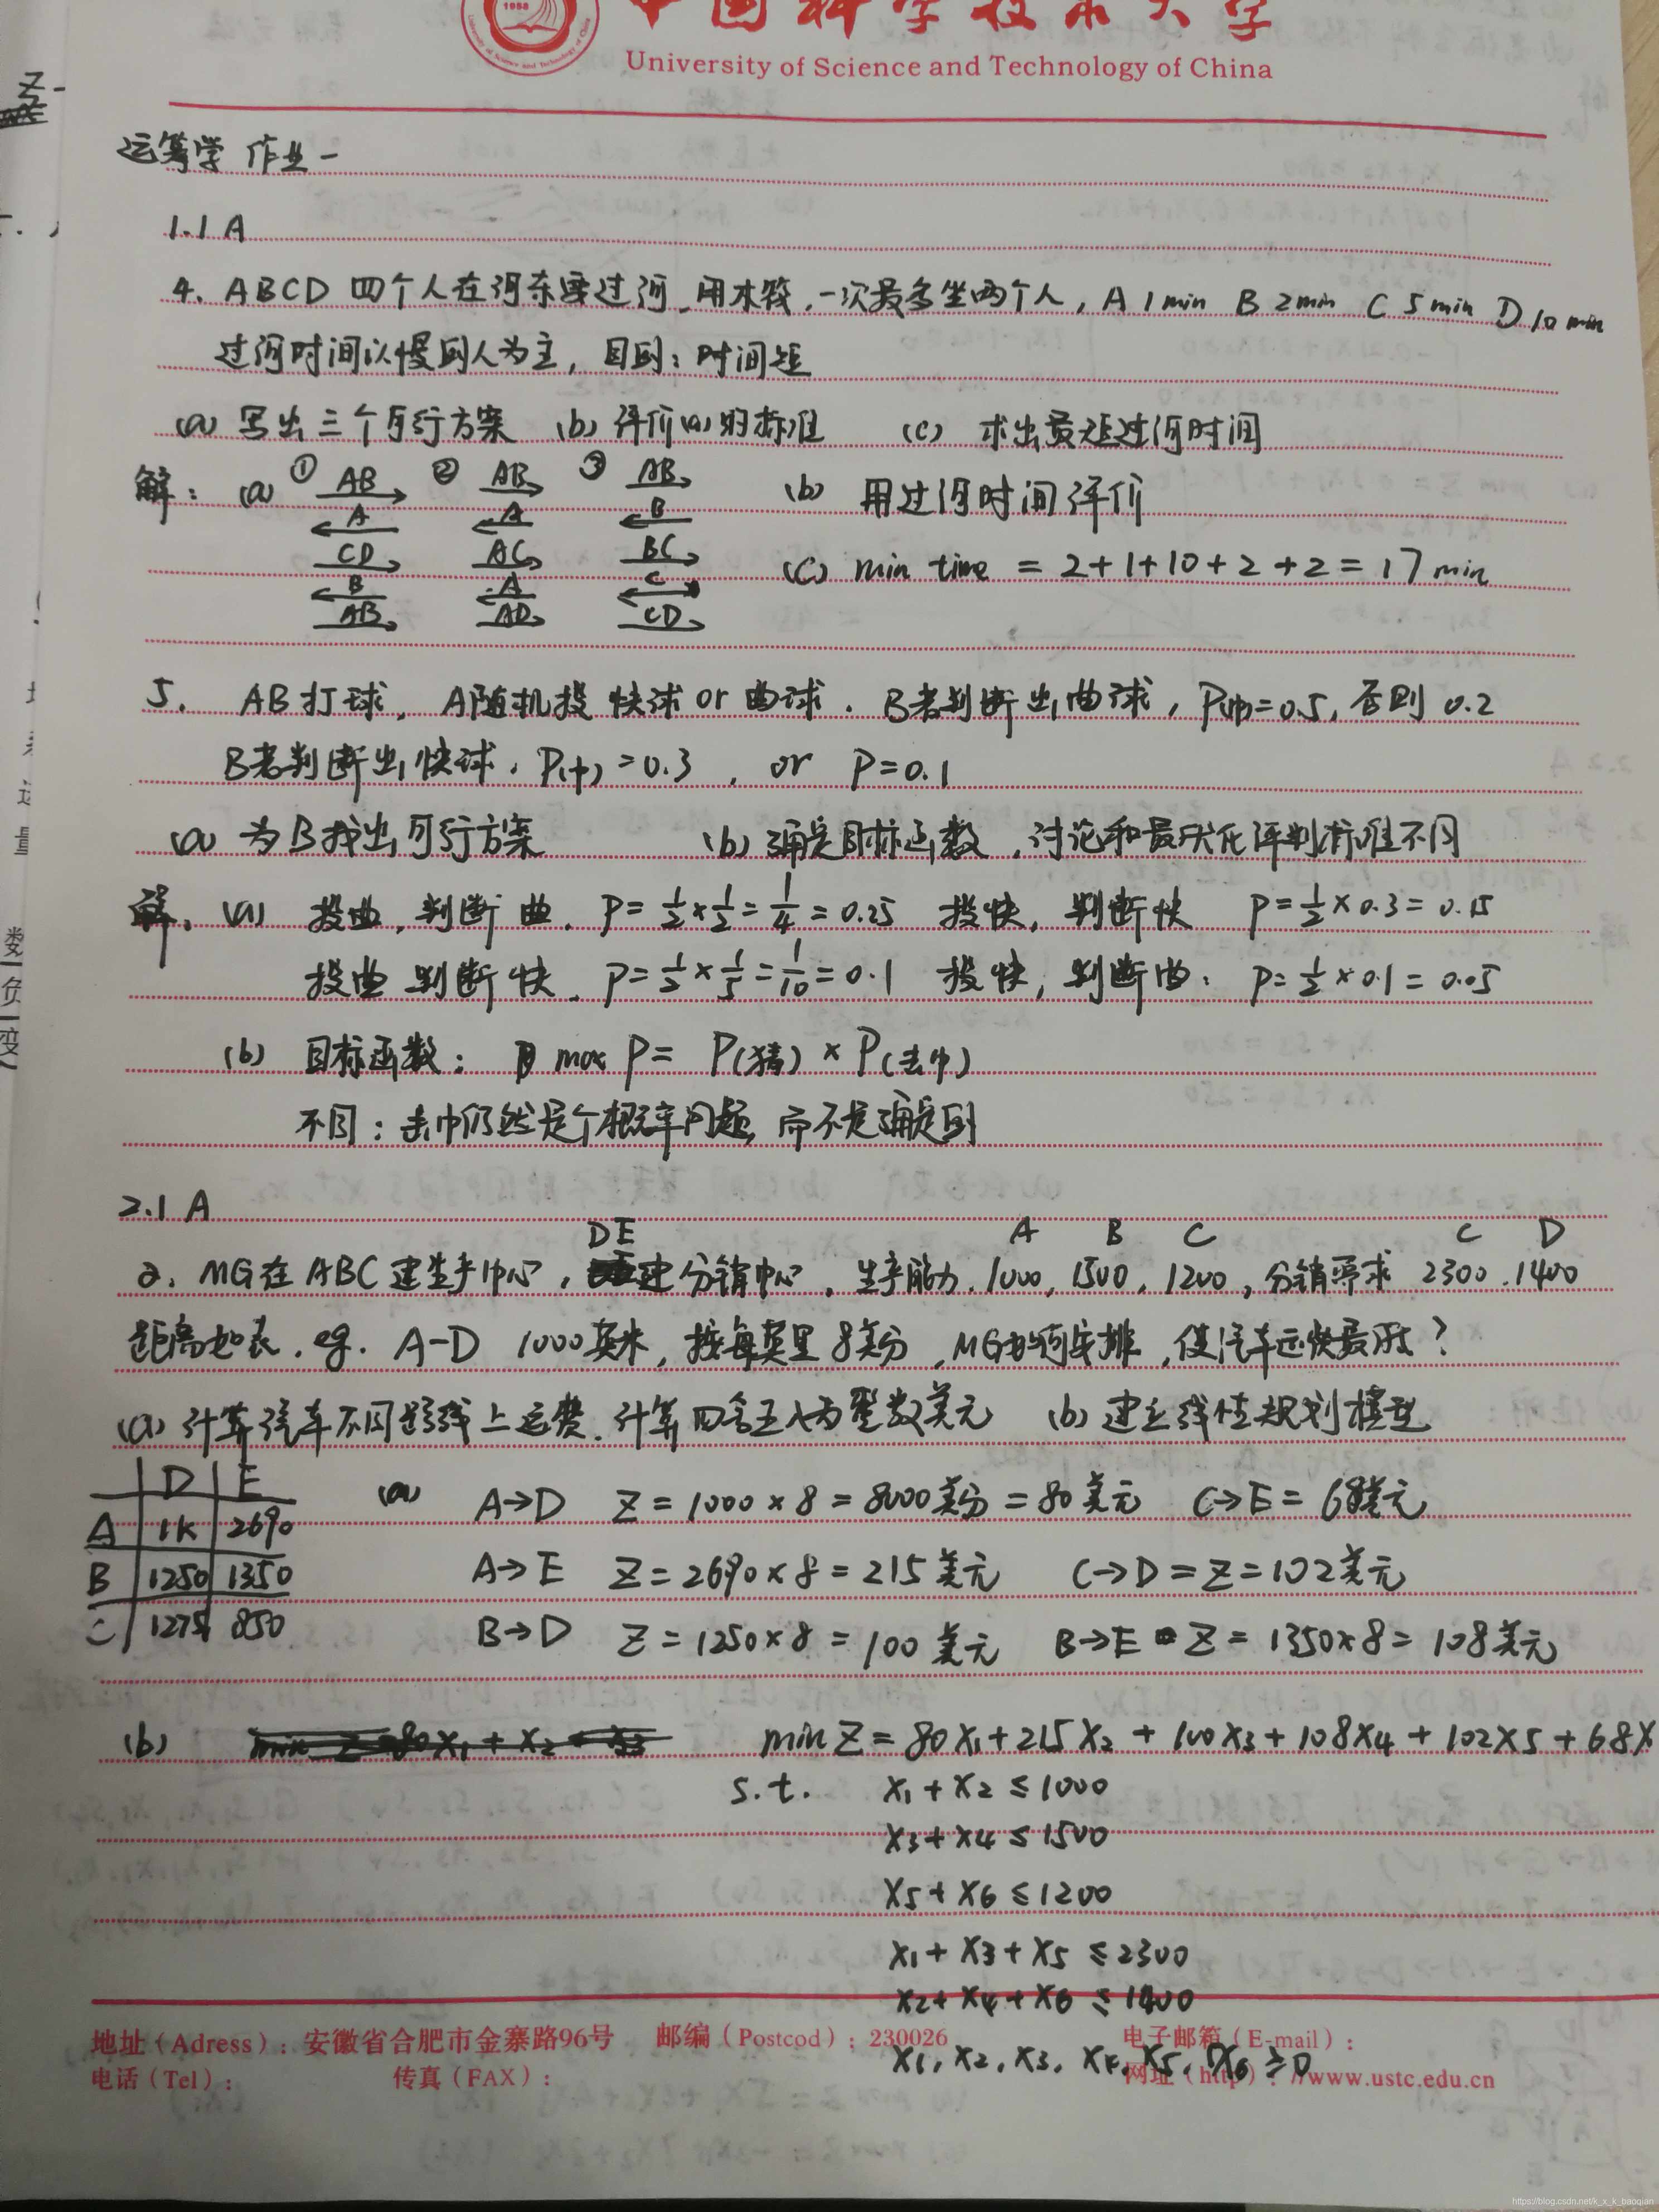 中国科学技术大学
University of Science and Technology of China
运筹学 作业一
1.1 A
4. ABCD 四个人在河东要过河, 用木筏, 一次最多坐两个人, A 1min B 2min C 5min D 10 min
过河时间以慢的人为主, 目的: 时间短
(a) 写出三个可行方案 (b) 评价(a)的标准 (c) 求出最短过河时间
解: (a) ① AB ② AB ③ AB (b) 用过河时间评价
A A B
CD AC BC (c) min time = 2+1+10+2+2 = 17 min
B A C
AB AD CD
5. AB打球, A随机投快球or曲球. B若判断出曲球, P(中)=0.5, 否则 0.2
B若判断出快球, P(中)=0.3, or P=0.1
(a) 为B找出可行方案 (b) 确定目标函数, 讨论和最优化评判标准不同
解: (a) 投曲, 判断曲. P=1/2×1/2=1/4=0.25 投快, 判断快 P=1/2×0.3=0.15
投曲 判断快. P=1/2×1/5=1/10=0.1 投快, 判断曲: P=1/2×0.1=0.05
(b) 目标函数: max P= P(猜)×P(击中)
不同: 击中仍然是个概率问题, 而不是确定的
2.1 A
DE A B C C D
2. MG在ABC建生产中心, 建分销中心, 生产能力. 1000, 1500, 1200, 分销需求 2300. 1400
距离如表. eg. A-D 1000英米, 按每英里8美分, MG如何安排, 使汽车运快最
(a) 计算汽车不同路线上运费. 计算四舍五入为整数美元 (b) 建立线性规划模型
D E
A 1K 2690
B 1250 1350
C 1275 850
(a) A→D Z=1000×8=8000美分=80美元 C→E=68美元
A→E Z=2690×8=215美元 C→D=Z=102美元
B→D Z=1250×8=100美元 B→E Z=1350×8=108美元
(b) min Z=80X1+215X2+100X3+108X4+102X5+68X
s.t. X1+X2≤1000
X3+X4≤1500
X5+X6≤1200
X1+X3+X5≤2300
X2+X4+X6≤1400
X1, X2, X3, X4, X5, X6≥0
地址(Adress): 安徽省合肥市金寨路96号 邮编(Postcod): 230026 电子邮箱(E-mail):
电话(Tel): 传真(FAX): 网址(http): //www.ustc.edu.cn
https://blog.csdn.net/k_x_k_baoqian